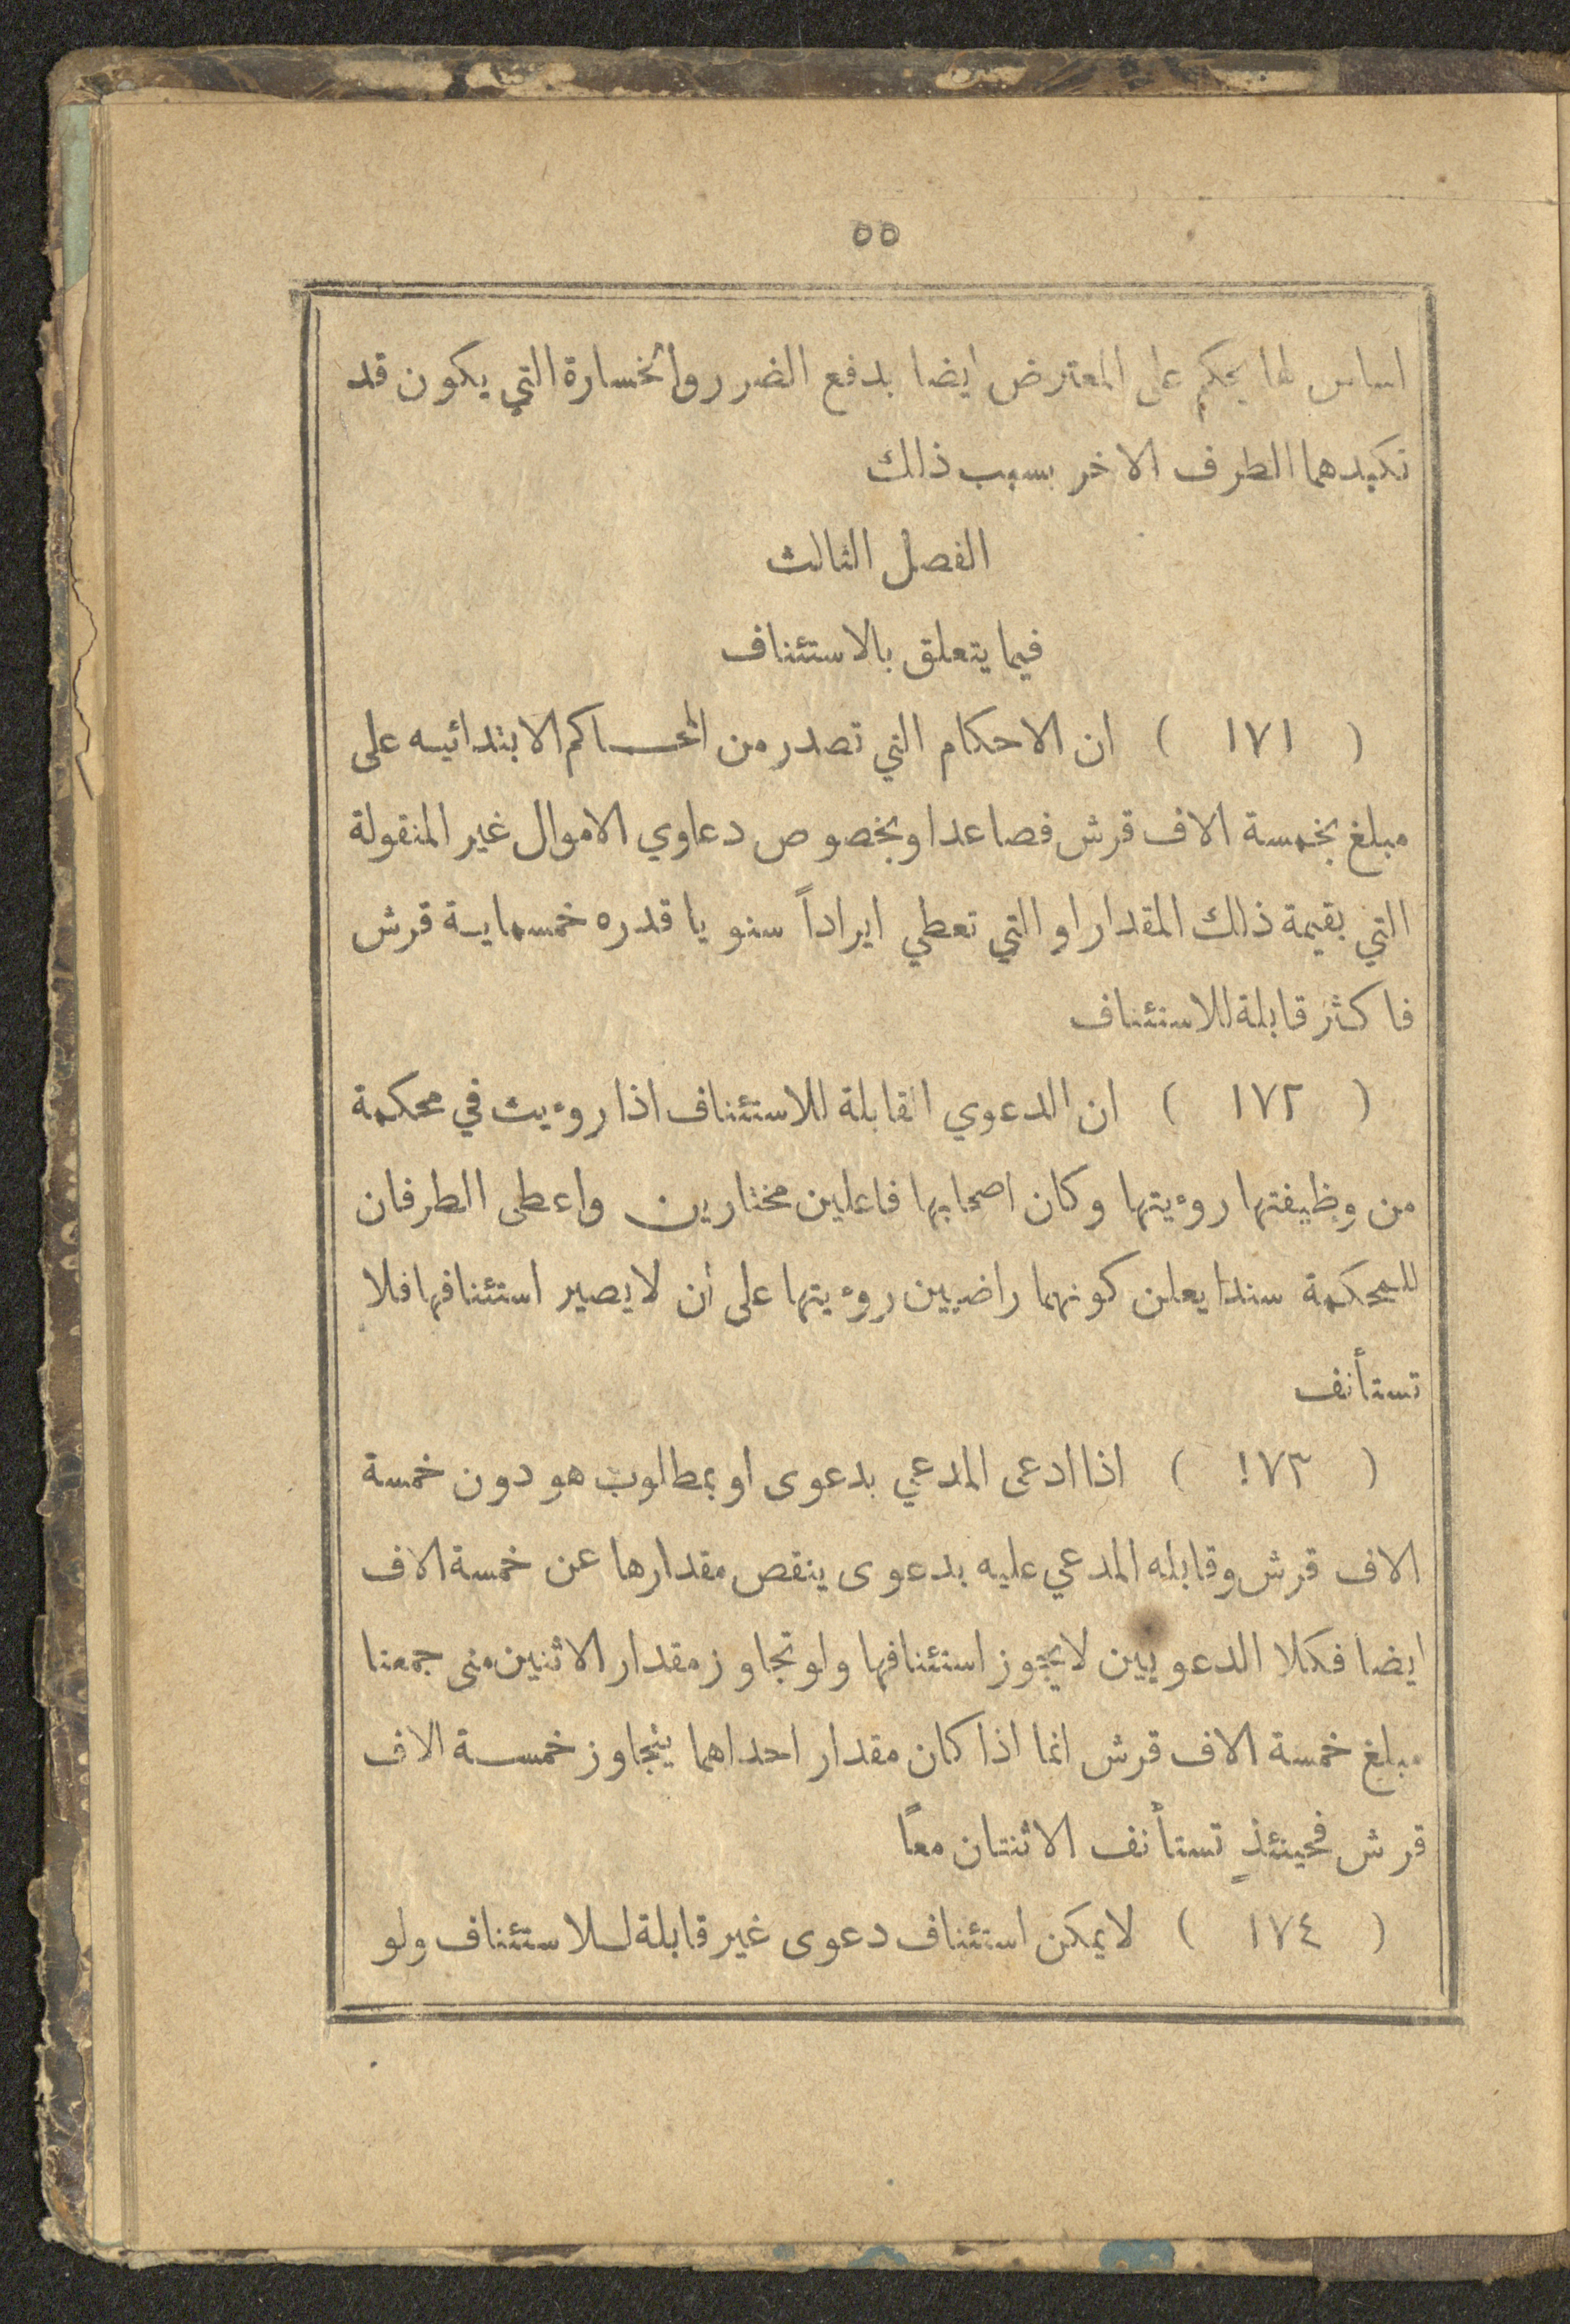 ٥٥
اساس لها يحكم على المعترض ايضا بدفع الضرر والخسارة التي يكون قد
تكبدهما الطرف الاخر بسبب ذلك
الفصل الثالث
فيما يتعلق بالاستئناف
( ١٧١ ) ان الاحكام التي تصدر من المحاكم الابتدائيه على
مبلغ بخمسة الاف قرش فصاعدا وبخصوص دعاوي الاموال غير المنقولة
التي بقيمة ذلك المقدار او التي تعطي ايراداً سنويا قدره خمسماية قرش
فاكثر قابلة للاستئناف
( ١٧٢ ) ان الدعوي القابلة للاستئناف اذا روءيت في محكمة
من وظيفتها روءيتها وكان اصحابها فاعلين مختارين واعطى الطرفان
للمحكمة سندا يعلن كونهما راضيين روءيتها على ان لا يصير استئنافها فلا
تستأنف
( ١٧٣ ) اذا ادعى المدعي بدعوى او بمطلوب هو دون خمسة
الاف قرش وقابله المدعي عليه بدعوى ينقص مقدارها عن خمسة الاف
ايضا فكلا الدعويين لا يجوز استئنافها ولو تجاوز مقدار الاثنين متى جمعتا
مبلغ خمسة الاف قرش انما اذا كان مقدار احداهما يتجاوز خمسة الاف
قرش فحينئذٍ تستأنف الاثنتان معاً
( ١٧٤ ) لا يمكن استئناف دعوى غير قابلة للاستئناف ولو